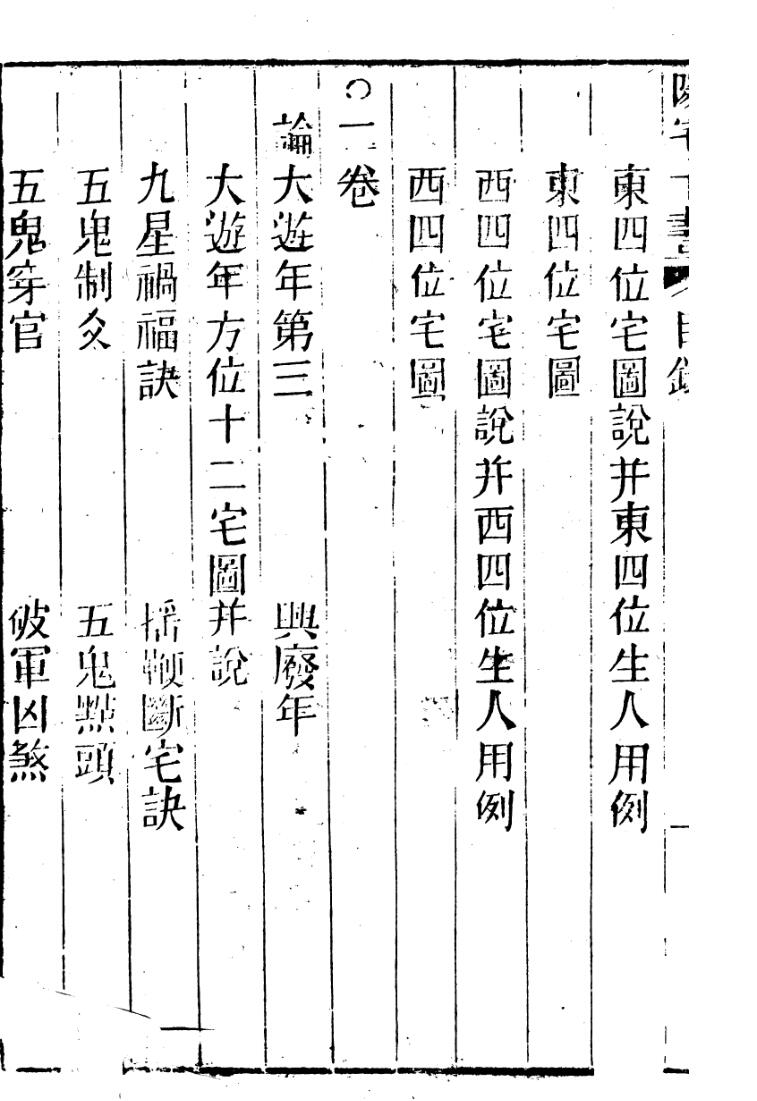 陽宅十書　目錄
東四位宅圖說并東四位生人用例
東四位宅圖
西四位宅圖說并西四位生人用例
西四位宅圖
○一卷
論大遊年第三　興廢年
大遊年方位十二宅圖并說
九星禍福訣　摇鞭斷宅訣
五鬼制爻　五鬼點頭
五鬼穿宫　破軍凶煞